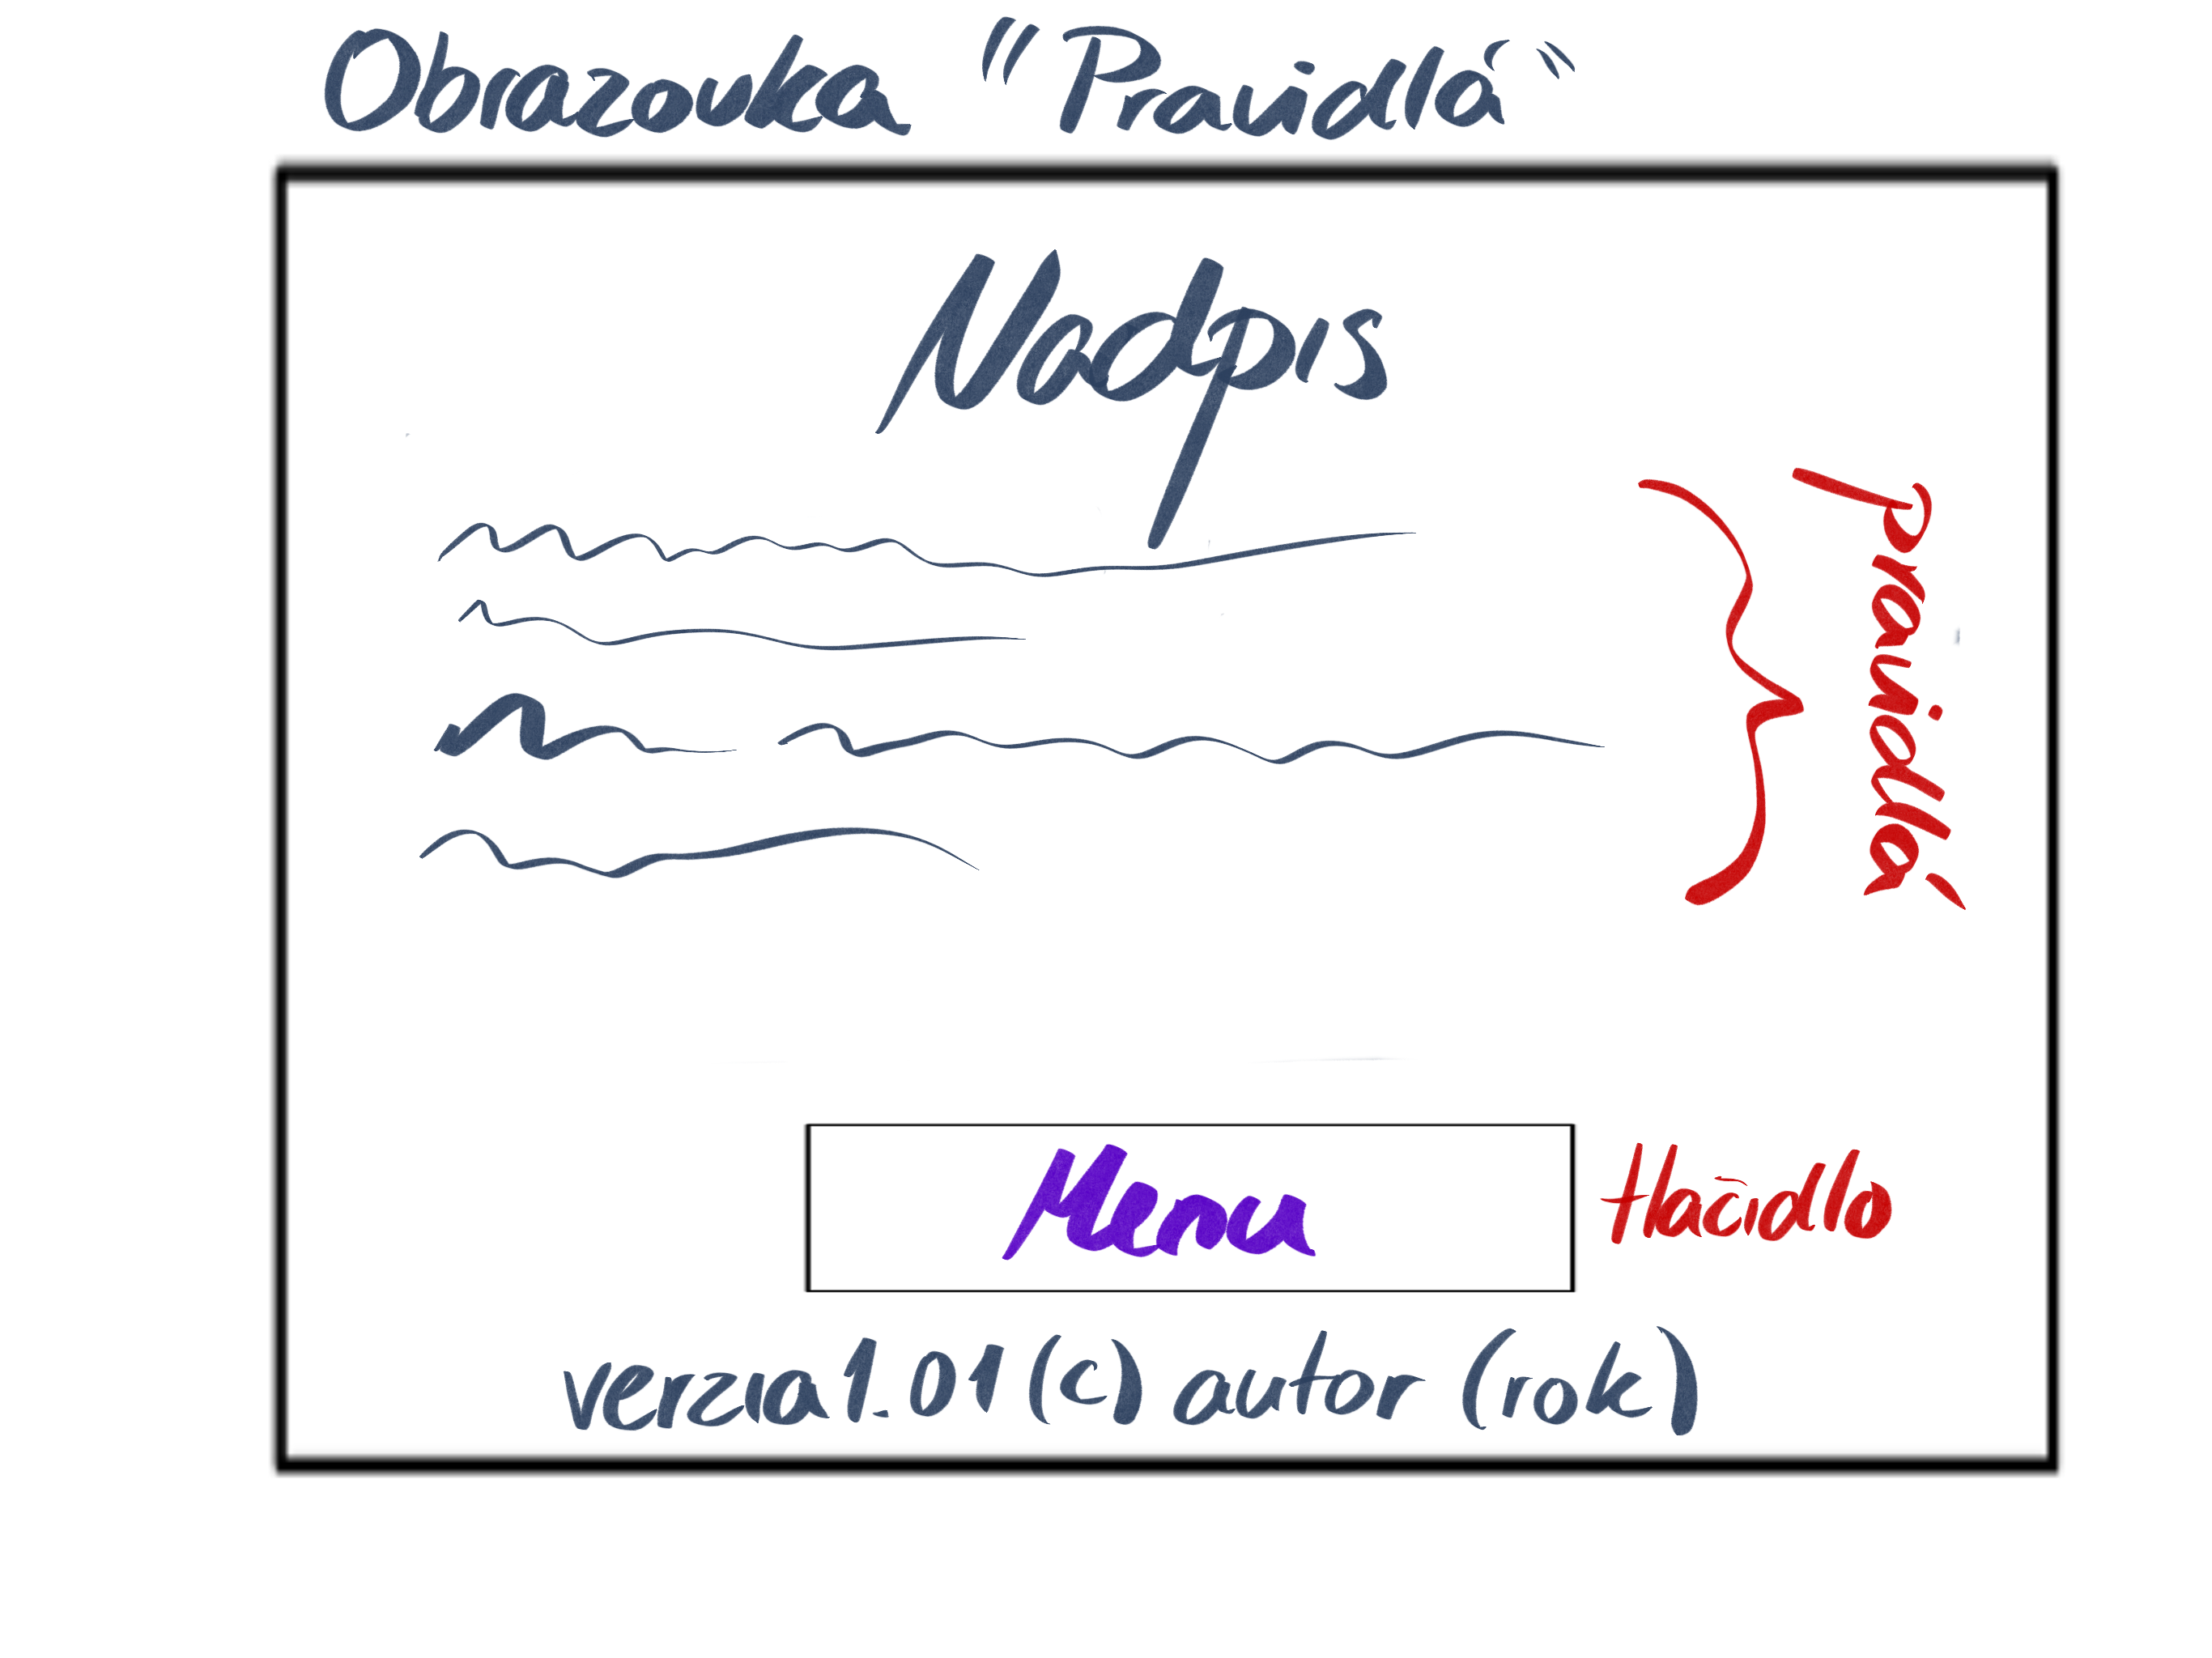 Obrazovka "Pravidlá"
Nadpis
pravidlá
Menu
tlačidlo
verzia 1.01 (c) autor (rok)